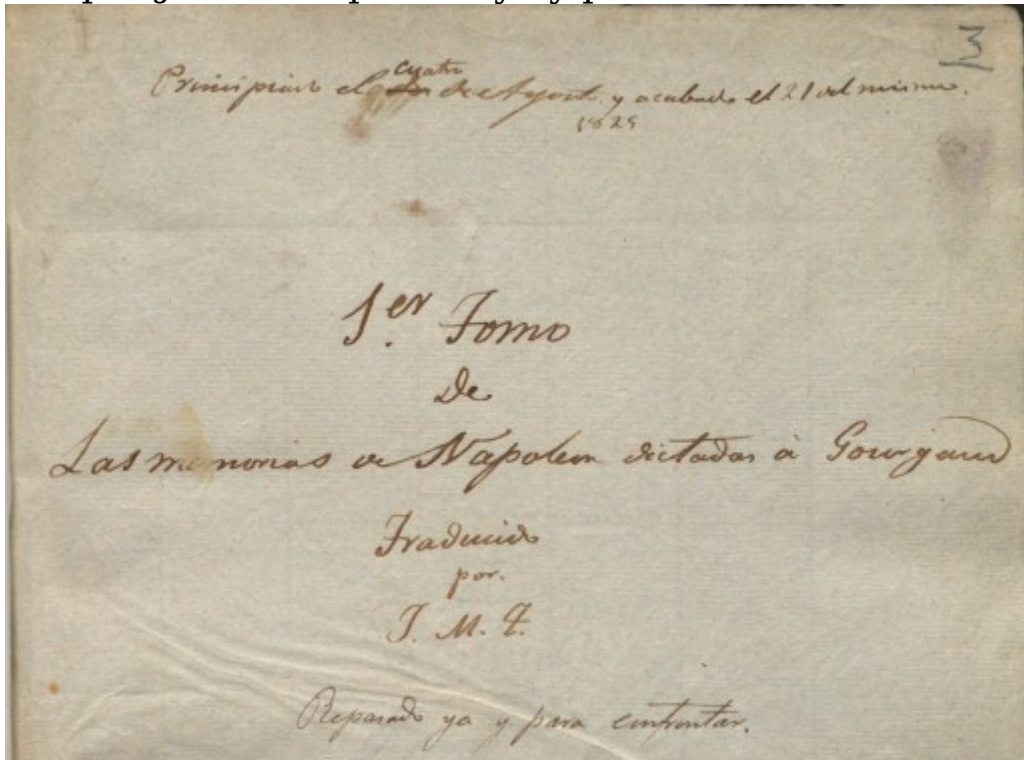 3
cuatro
Principiado el de Agosto. y acabado el 21 del mismo.
1829
1.er Tomo
De
Las memorias de Napoleon dictadas à Gourgaud
Traducido
por.
J. M. T.
Reparado ya y para confrontar.